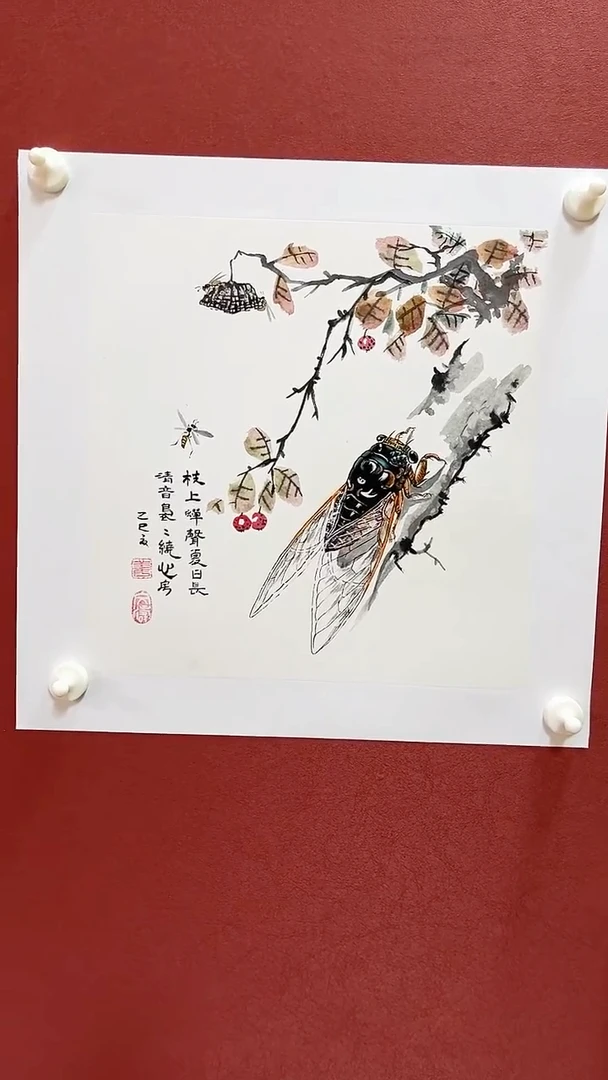 枝上蟬聲夏日長
清音裊〻繞心房
乙巳夏